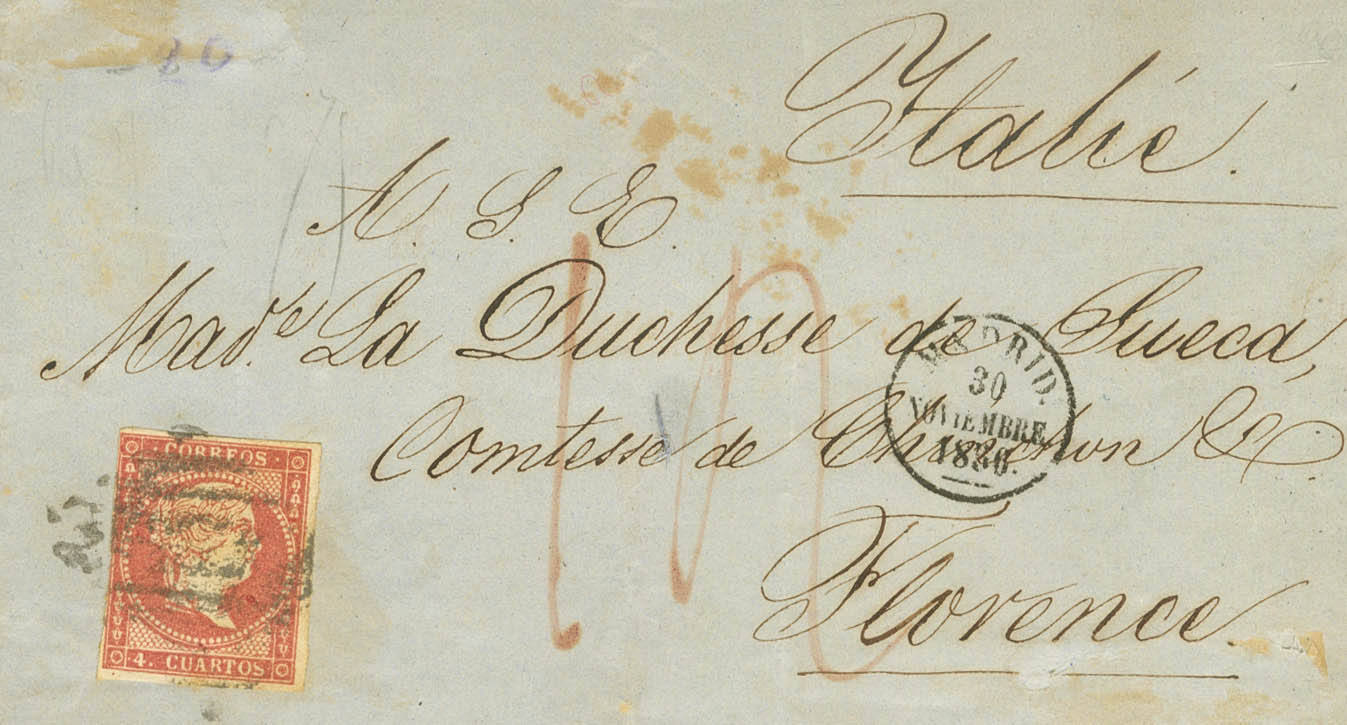 Italié.
A. S. E.
Made. La Duchesse de Sueca,
Comtesse de Chinchon &a
Florence.
MADRID.
30
NOVIEMBRE
CORREOS
4. CUARTOS